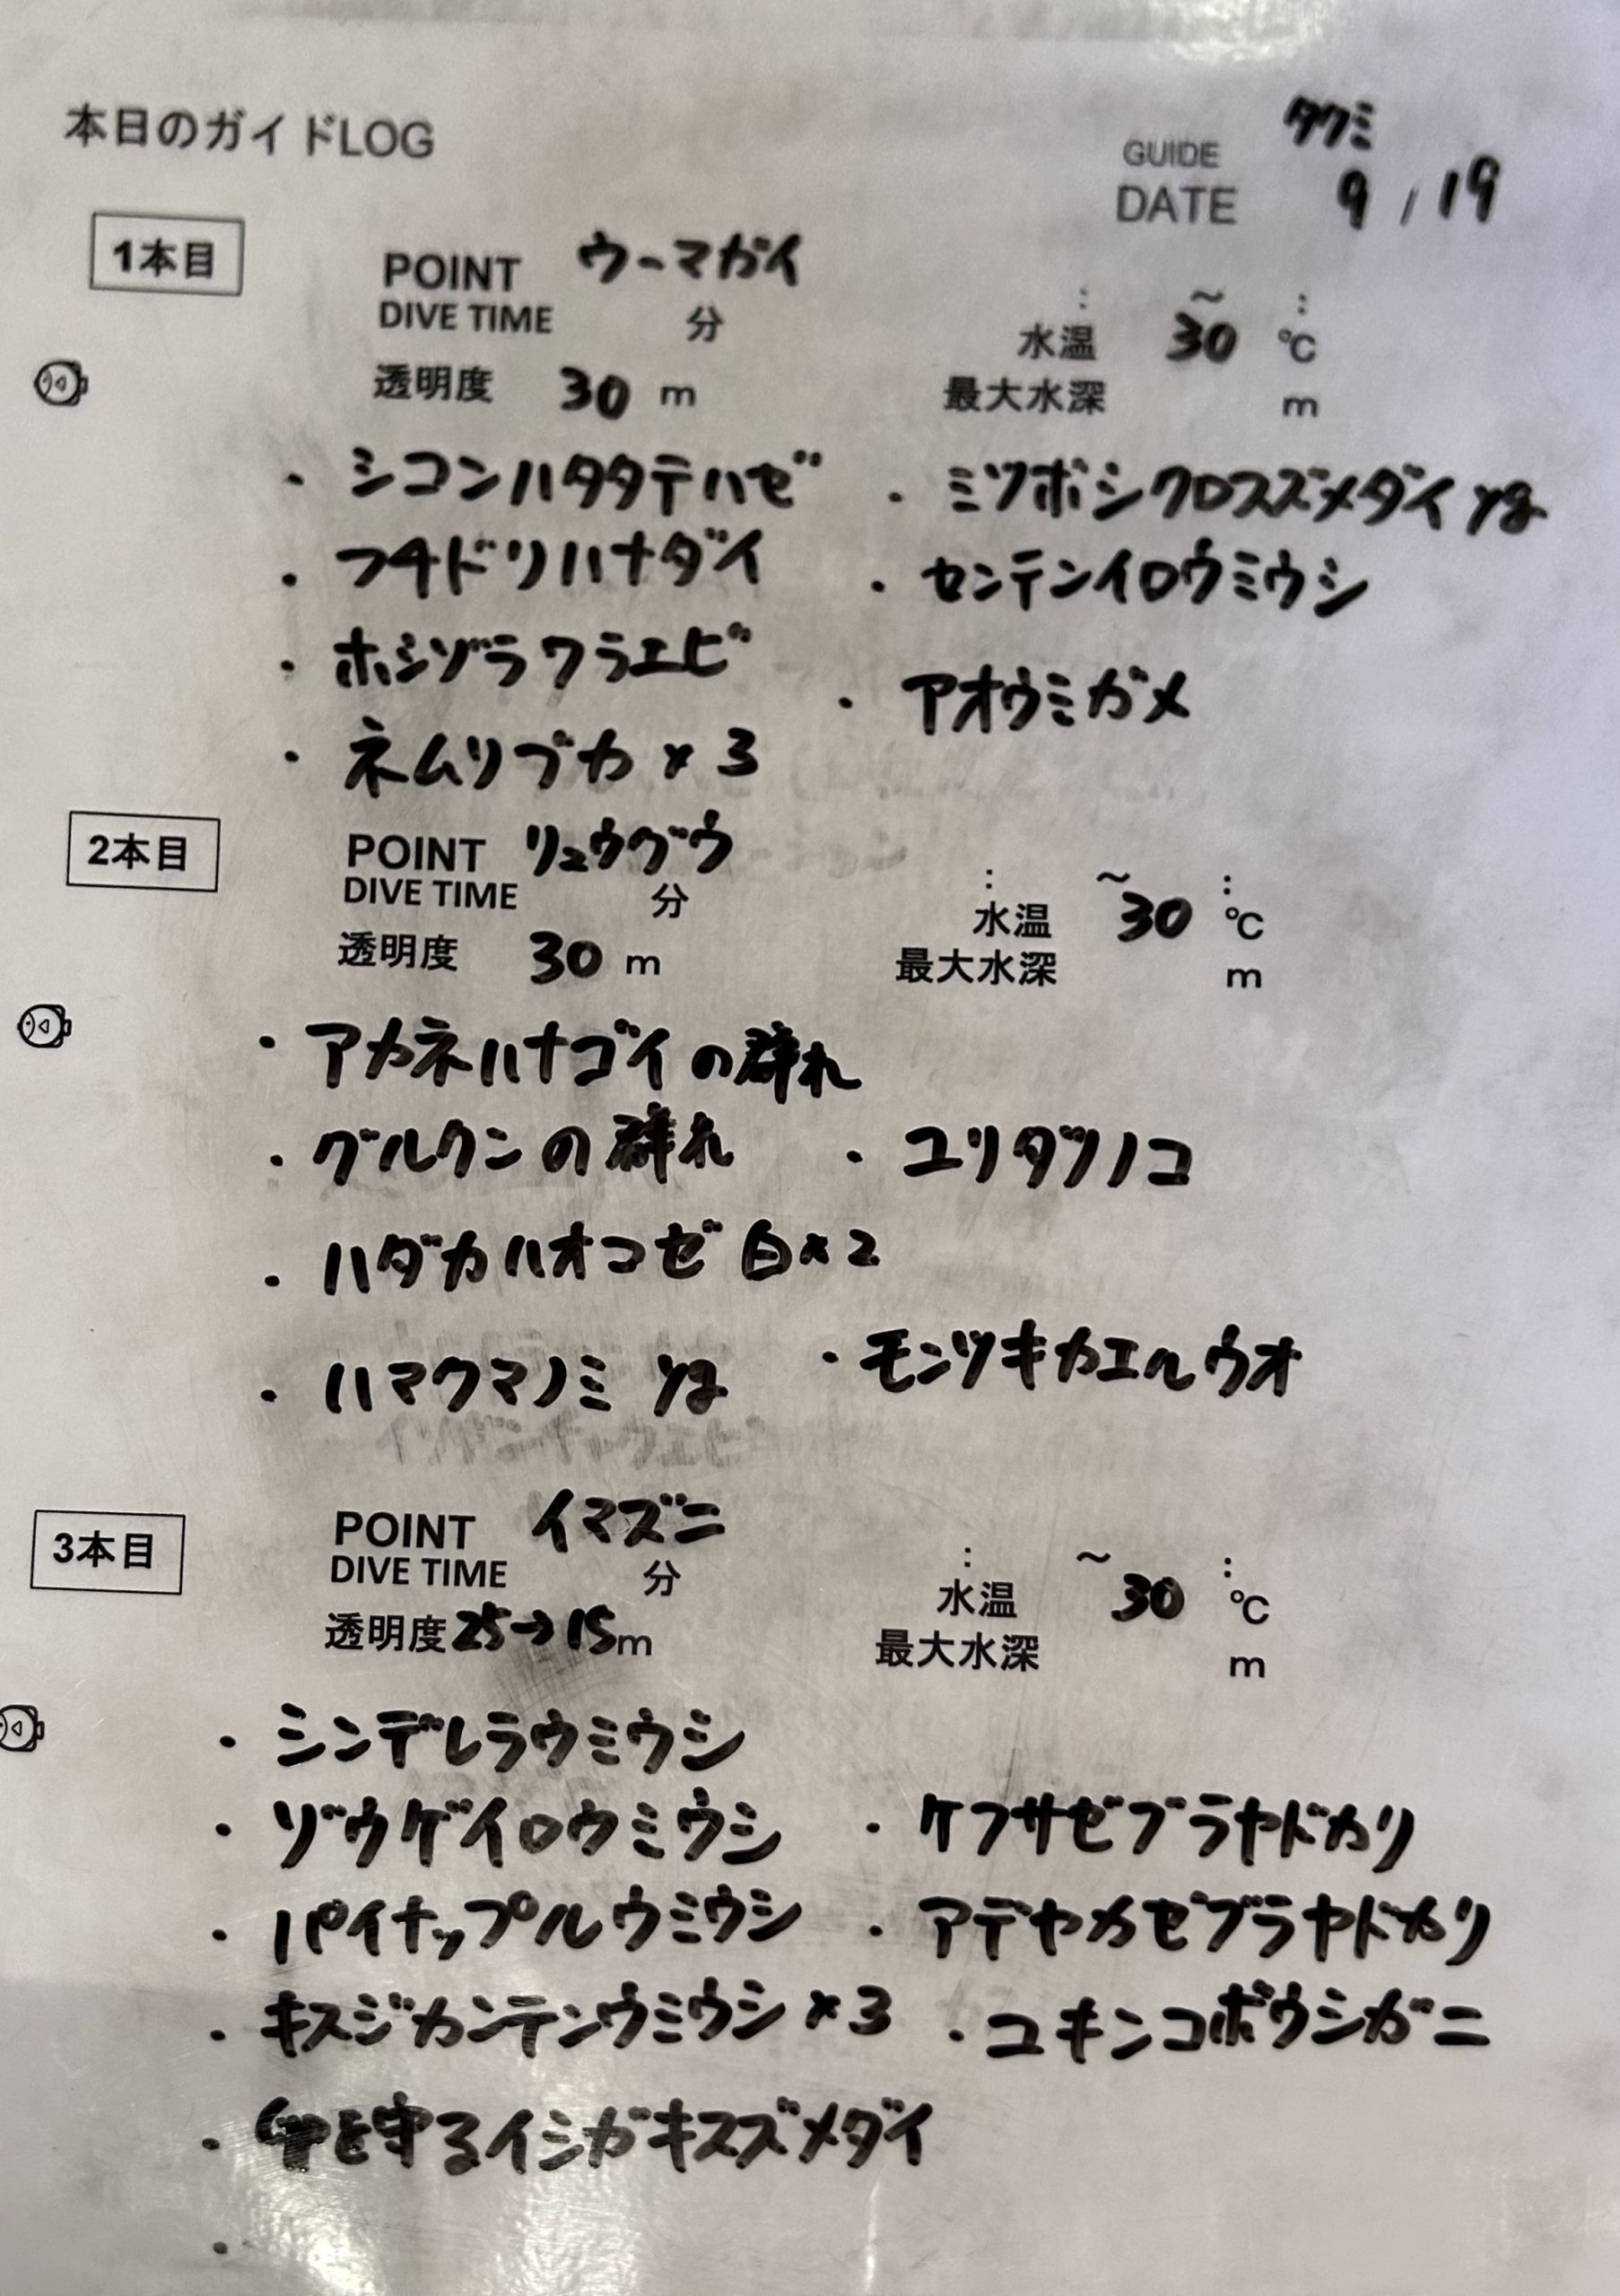 本日のガイドLOG
GUIDE タクミ
DATE 9/19
1本目
POINT ウーマガイ
DIVE TIME 分 : ~ :
水温 30 ℃
透明度 30 m
最大水深 m
・シコンハタタテハゼ ・ミツボシクロスズメダイ yg
・フチドリハナダイ ・センテンイロウミウシ
・ホシゾラワラエビ ・アオウミガメ
・ネムリブカ×3
2本目
POINT リュウグウ
DIVE TIME 分 : ~ :
水温 30 ℃
透明度 30 m
最大水深 m
・アカネハナゴイの群れ
・グルクンの群れ ・ユリタツノコ
・ハダカハオコゼ 白×2
・ハマクマノミ yg ・モンツキカエルウオ
3本目
POINT イマズニ
DIVE TIME 分 : ~ :
水温 30 ℃
透明度 25→15m
最大水深 m
・シンデレラウミウシ
・ゾウゲイロウミウシ ・ケフサゼブラヤドカリ
・パイナップルウミウシ ・アデヤカゼブラヤドカリ
・キスジカンテンウミウシ×3 ・ユキンコボウシガニ
・を守るイシガキスズメダイ
・